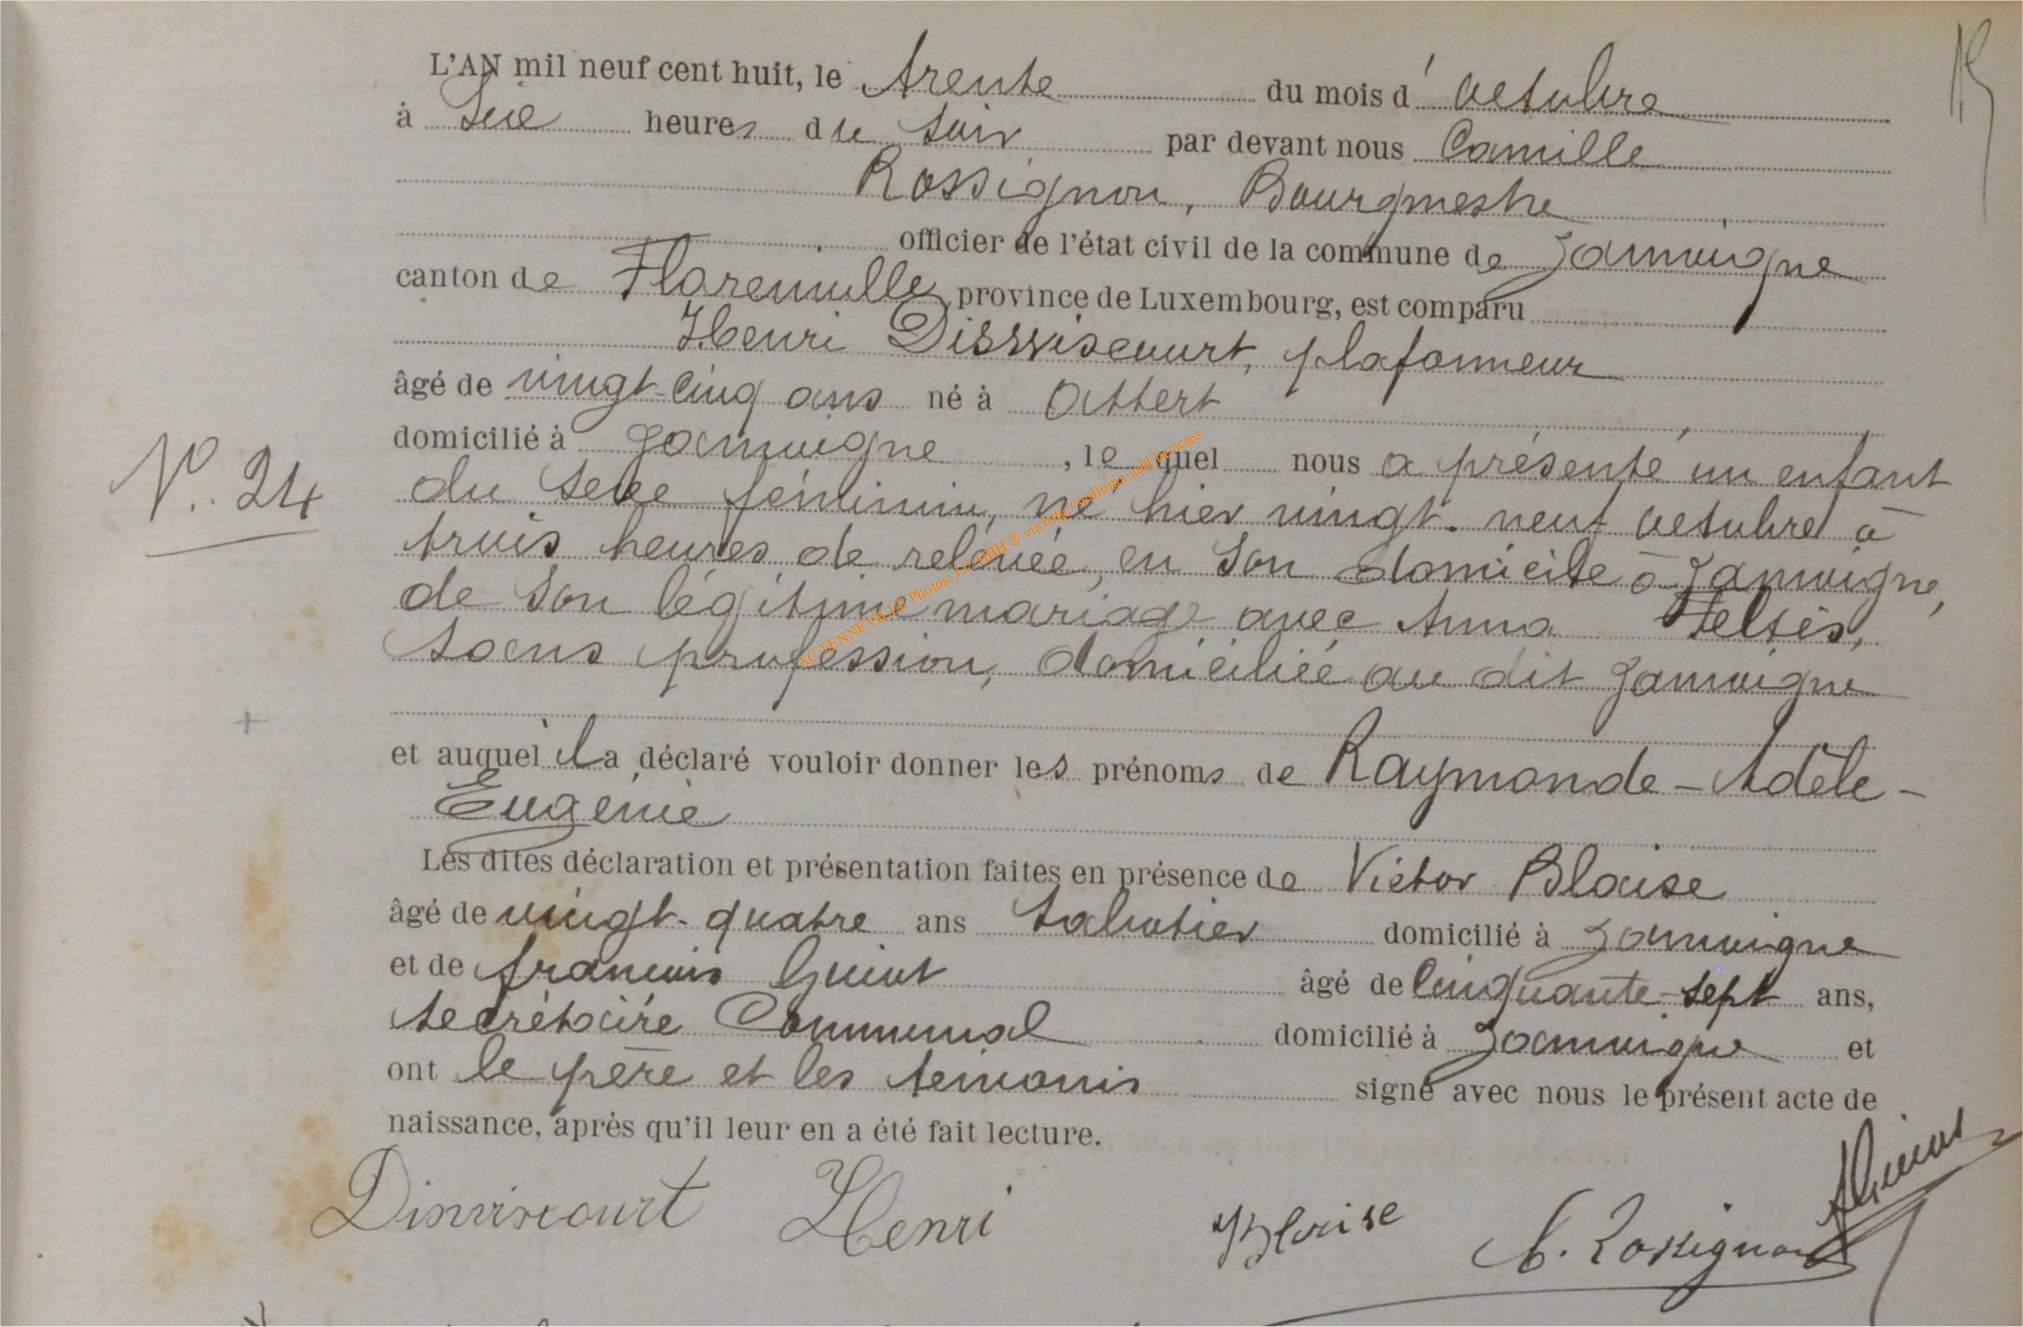 L'AN mil neuf cent huit, le trente du mois d'octobre
à six heures du soir par devant nous Camille
Rossignon, Bourgmestre
officier de l'état civil de la commune de Jamoigne
canton de Florenville, province de Luxembourg, est comparu
Henri Dissviscourt, plafonneur
âgé de vingt-cinq ans né à Attert
domicilié à Jamoigne, lequel nous a présenté un enfant
N° 24
du sexe féminin, né hier vingt-neuf octobre à
trois heures de relevée, en son domicile à Jamoigne,
de son légitime mariage avec Anna Feltès,
sans profession, domiciliée au dit Jamoigne
et auquel il a déclaré vouloir donner les prénoms de Raymonde-Adèle-
Eugénie
Les dites déclaration et présentation faites en présence de Victor Blaise
âgé de vingt-quatre ans sabotier domicilié à Jamoigne
et de François Guiot âgé de cinquante-sept ans,
secrétaire Communal domicilié à Jamoigne et
ont le père et les témoins signé avec nous le présent acte de
naissance, après qu'il leur en a été fait lecture.
Dissviscourt Henri Blaise C. Rossignon Guiot